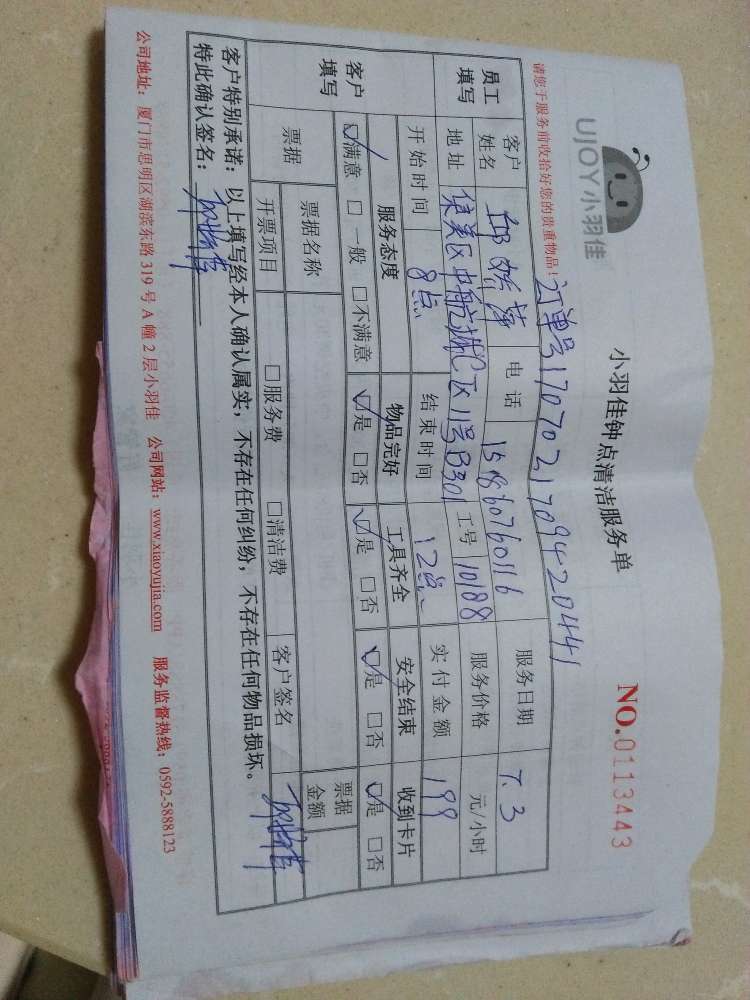 UJOY小羽佳
小羽佳钟点清洁服务单
NO.0113443
请您于服务前收拾好您的贵重物品！
订单号170702170942 0441
员工填写 客户姓名 电话 15860760116 服务日期 7.3
地址 区1号B301 工号 10188 服务价格 元/小时
开始时间 8点 结束时间 12点 实付金额 199
客户填写 服务态度 物品完好 工具齐全 安全结束 收到卡片
☑满意 □一般 □不满意 ☑是 □否 ☑是 □否 ☑是 □否 ☑是 □否
票据 票据名称 票据金额
开票项目 □服务费 □清洁费 客户签名
客户特别承诺：以上填写经本人确认属实，不存在任何纠纷，不存在任何物品损坏。
特此确认签名：
公司地址：厦门市思明区湖滨东路319号A幢2层小羽佳 公司网站：www.xiaoyujia.com 服务监督热线：0592-5888123